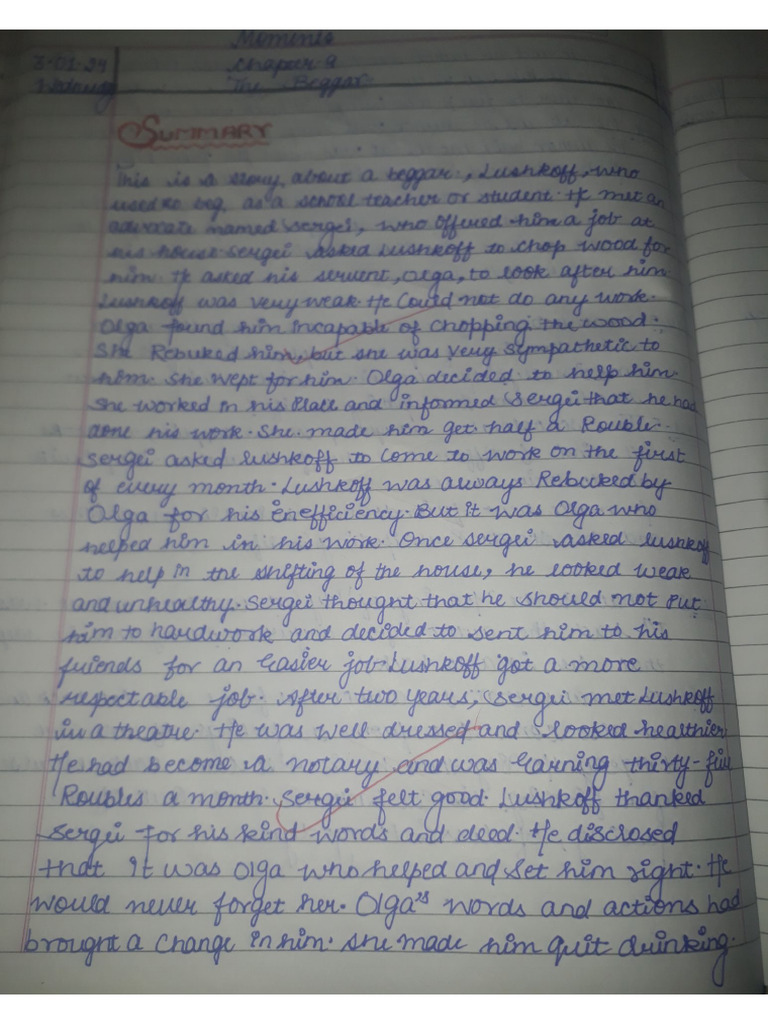 Moments
Chapter-9
The Beggar
SUMMARY
This is a story about a beggar, Lushkoff, who
used to beg as a school teacher or student. He met an
advocate named Sergei, who offered him a job at
his house. Sergei asked Lushkoff to chop wood for
him. He asked his servent, Olga, to look after him.
Lushkoff was very weak. He could not do any work.
Olga found him incapable of chopping the wood.
She Rebuked him, but she was very sympathetic to
him. She wept for him. Olga decided to help him.
She worked in his place and informed Sergei that he had
done his work. She made him get half a Rouble.
Sergei asked Lushkoff to come to work on the first
of every month. Lushkoff was always Rebuked by
Olga for his enefficiency. But it was Olga who
helped him in his work. Once Sergei asked Lushkoff
to help in the shifting of the house, he looked weak
and unhealthy. Sergei thought that he should not put
him to hardwork and decided to sent him to his
friends for an easier job. Lushkoff got a more
respectable job. After two years, Sergei met Lushkoff
in a theatre. He was well dressed and looked healthier.
He had become a notary and was earning thirty-five
Roubles a month. Sergei felt good. Lushkoff thanked
Sergei for his kind words and deed. He disclosed
that it was Olga who helped and set him right. He
would never forget her. Olga's words and actions had
brought a change in him. She made him quit drinking.